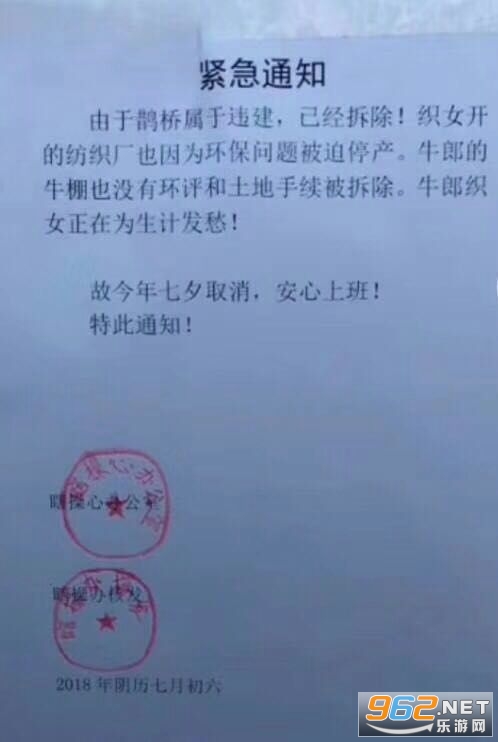 紧急通知
由于鹊桥属于违建，己经拆除！织女开
的纺织厂也因为环保问题被迫停产。牛郎的
牛棚也没有环评和土地手续被拆除。牛郎织
女正在为生计发愁！
故今年七夕取消，安心上班！
特此通知！
瞎操心办公室
瞎操心办公室
瞎操办核发
2018年阴历七月初六
962.NET
乐游网